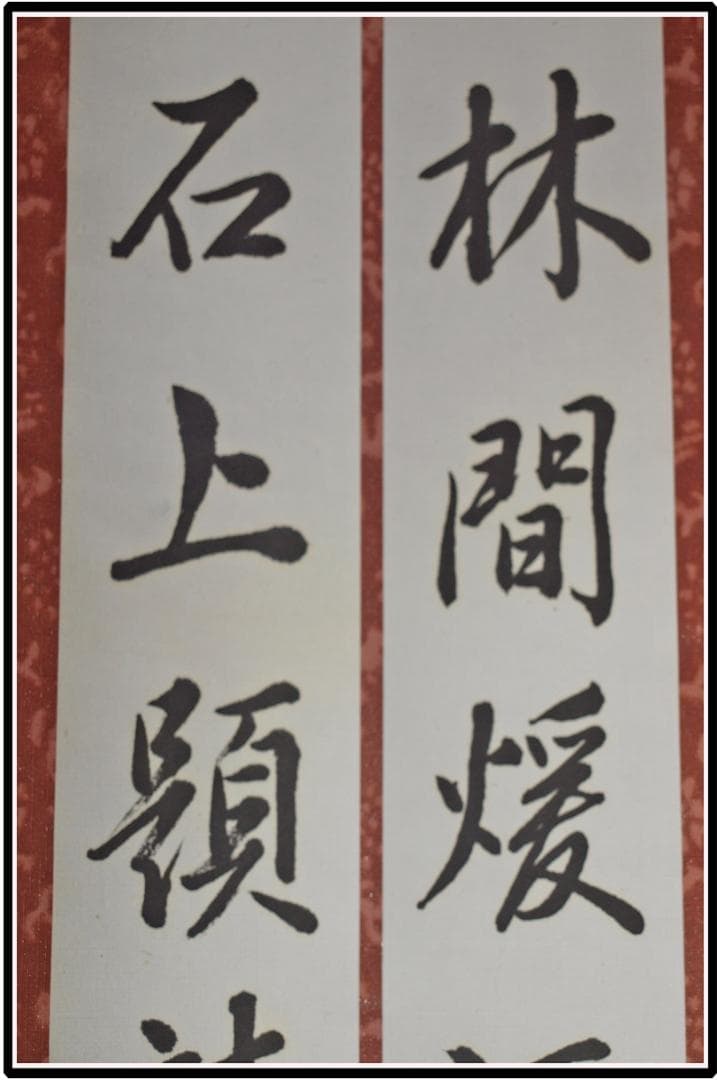 林間煖
石上題